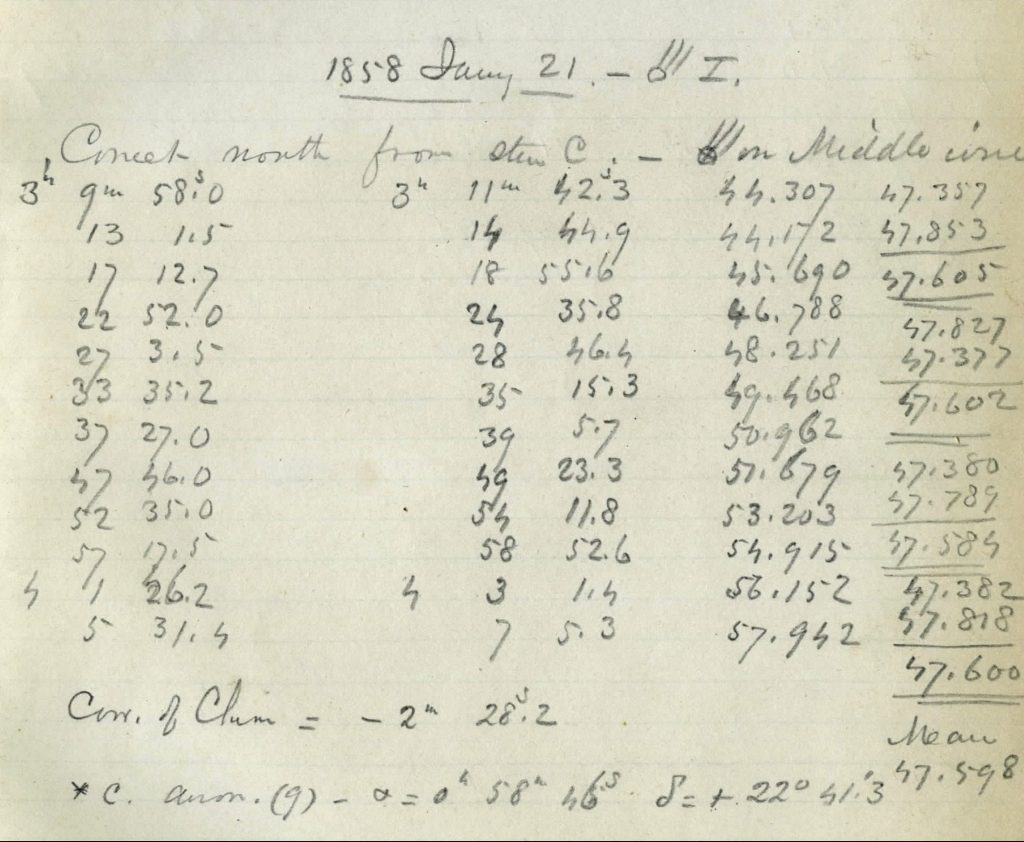 1858 Jany 21. – ☄ I.
Comet north from star C. – ☄ on Middle wire
3ʰ 9ᵐ 58ˢ.0 3ʰ 11ᵐ 42ˢ.3 44.307 47.357
13 1.5 14 44.9 44.172 47.853
17 12.7 18 55.6 45.690 47.605
22 52.0 24 35.8 46.788 47.827
27 3.5 28 46.4 48.251 47.377
33 35.2 35 15.3 49.468 47.602
37 27.0 39 5.7 50.962
47 46.0 49 23.3 51.679 47.380
52 35.0 54 11.8 53.203 47.789
57 17.5 58 52.6 54.915 47.584
4 1 26.2 4 3 1.4 56.152 47.382
5 31.4 7 5.3 57.942 47.818
47.600
Corr. of Chron = – 2ᵐ 28ˢ.2
Mean
* C. anon. (9) – α = 0ʰ 58ᵐ 46ˢ δ = + 22° 41'.3 47.598